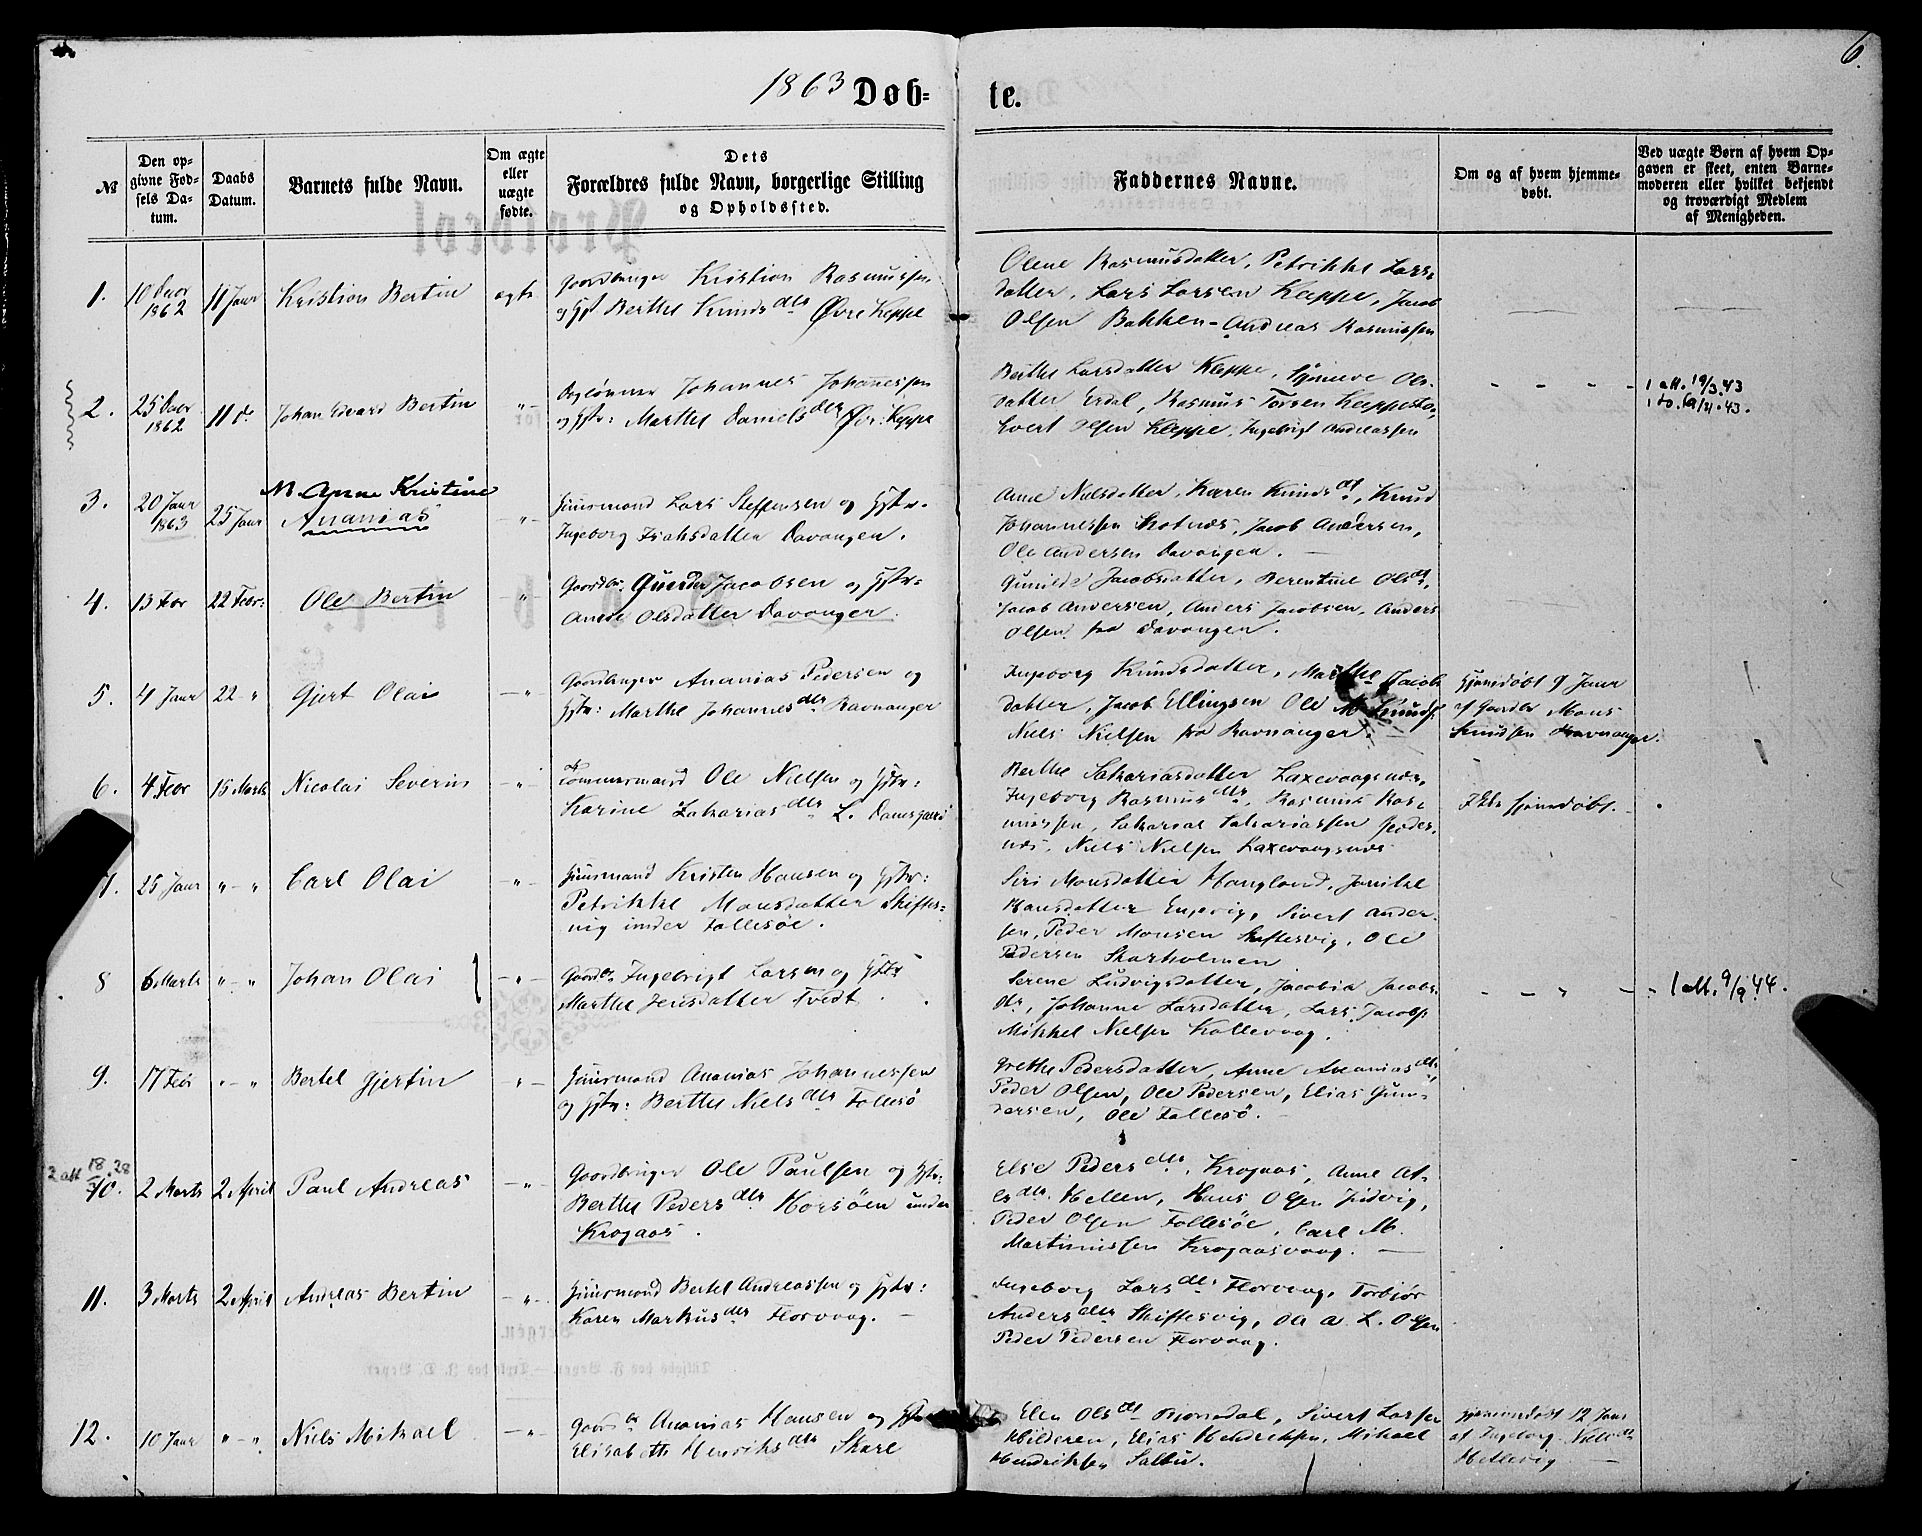 6.
1863 Døb= te.
№
Den op=
givne Fød=
sels Da=
tum.
Daabs
Datum.
Barnets fulde Navn.
Om ægte
eller
uægte
fødte.
Dets
Forældres fulde Navn, borgerlige Stilling
og Opholdssted.
Faddernes Navne.
Om og af hvem hjemme=
døbt.
Ved uægte Børn af hvem Op=
gaven er skeet, enten Barne=
moderen eller hvilket bekjendt
og troværdigt Medlem
af Menigheden.
1.
10 Decbr
1862
11 Janr
Kristian Bertin
ægte
Gaardbruger Kristian Rasmussen
og Hst Berthe Knudsdtr Øvre Kleppe
Olene Rasmusdatter, Petrikke Lars
datter, Lars Larsen Kleppe, Jacob
Olsen Bakken - Andreas Rasmussen
2.
25 Decbr
1862
11 do
Johan Edvard Bertin
-"-
Johannes Johannessen
og Hstr: Marthe Danielsdtr Øvr: Kleppe
Berthe Larsdatter Kleppe, Synneve Ols
datter Erdal, Rasmus Torsen Kleppestø,
Evert Olsen Kleppe, Ingebrigt Andreassen
1 att. 19/3.43
1 do. 19/4.43.
3.
20 Janr
1863
25 Janr
M. Anne Kristine
Ananias
-"-
Huusmand Lars Steffensen og Hstr.
Ingeborg Isaksdatter Davangen.
Anne Nielsdatter, Karen Knudsdt, Knud
Johannessen Skotnes, Jacob Andersen,
Ole Andersen Davangen.
4.
13 Febr
22 Febr:
Ole Bertin
-"-
Gaardbr. Gunder Jacobsen og Hstr:
Anne Olsdatter Davanger.
Gunilde Jacobsdatter, Berentine Olsdt,
Jacob Andersen, Anders Jacobsen, Anders
Olsen fra Davangen.
5.
4 Janr
22 - "
Gjert Olai
-"-
Gaardbruger Ananias Pedersen og
Hstr: Marthe Johannesdtr Ravnanger
Ingeborg Knudsdatter, Marthe Jacobs
datter, Jacob Ellingsen Ole M. Knuds.
Niels Nielsen fra Ravnanger.
Hjemdøbt 9 Janr
af Gaardbr Mons
Knudsen Ravnanger.
6.
4 Febr
15 Marts
Nicolai Severin
-"-
Tømmermand Ole Nielsen og Hstr:
Karine Zakariasdtr L. Damsgaard
Berthe Sakariasdatter Laxevaagsnes,
Ingeborg Rasmusdtr, Rasmus Ras=
mussen, Sakarias Sakariassen
Niels Nielsen Laxevaagsnes
hjemdøbt.
7.
25 Janr
" - "
Carl Olai
-"-
Huusmand Kristen Hansen og Hstr:
Petrikke Monsdatter Skiftes=
vig under Follesøe.
Siri Monsdatter Haugland, Janikke
Hansdatter Engevig, Sivert Ander=
sen, Peder Monsen Skiftesvig, Ole
Pedersen Skarholmen
8
6 Marts
" - "
Johan Olai
-"-
Gaardbr Ingebrigt Larsen og Hstr
Marthe Jensdatter Tvedt.
Serene Ludvigsdatter, Jacobia Jacobs
dtr, Johanne Larsdatter, Lars Jacobs.
Mikkel Nielsen Kollevaag.
1 att. 9/9.44.
9.
17 Febr
" - "
Bertel Gjertin
-"-
Huusmand Ananias Johannessen
og Hstr: Berthe Nielsdtr Follesø
Grethe Pedersdatter, Anne Ananiasdtr,
Peder Olsen, Ole Pedersen, Elias Gun=
dersen, Ole Follesø.
2 att 18 28
10.
2 Marts
2 April
Paul Andreas
-"-
Gaardbruger Ole Paulsen og Hstr:
Berthe Pedersdtr Horsøen under
Krogaas.
Else Pedersdtr, Krogaas, Anne
Hellen, Hans Olsen
Peder Olsen Follesøe, Carl M.
Martinussen Krogaasvaag.
11.
3 Marts
2 April
Andreas Bertin
-"-
Huusmand Bertel Andreassen og Hstr:
Karen Markusdtr Florvaag.
Ingeborg Larsdtr Florvaag, Torbjør
Andersdtr Skiftesvig, Ole A. L. Olsen
Peder Pedersen Florvaag.
12.
10 Janr
" - "
Niels Mikael
-"-
Gaardbr Ananias Hansen og Hstr
Elisabeth Henriksdtr Skare
Elen Olsdt Bjørndal, Sivert Larsen
Hilderen, Elias Hendriksen, Mikael
Hendriksen
Hjemmedøbt 12 Janr
af Ingeborg Nielsdtr
Hetlevig